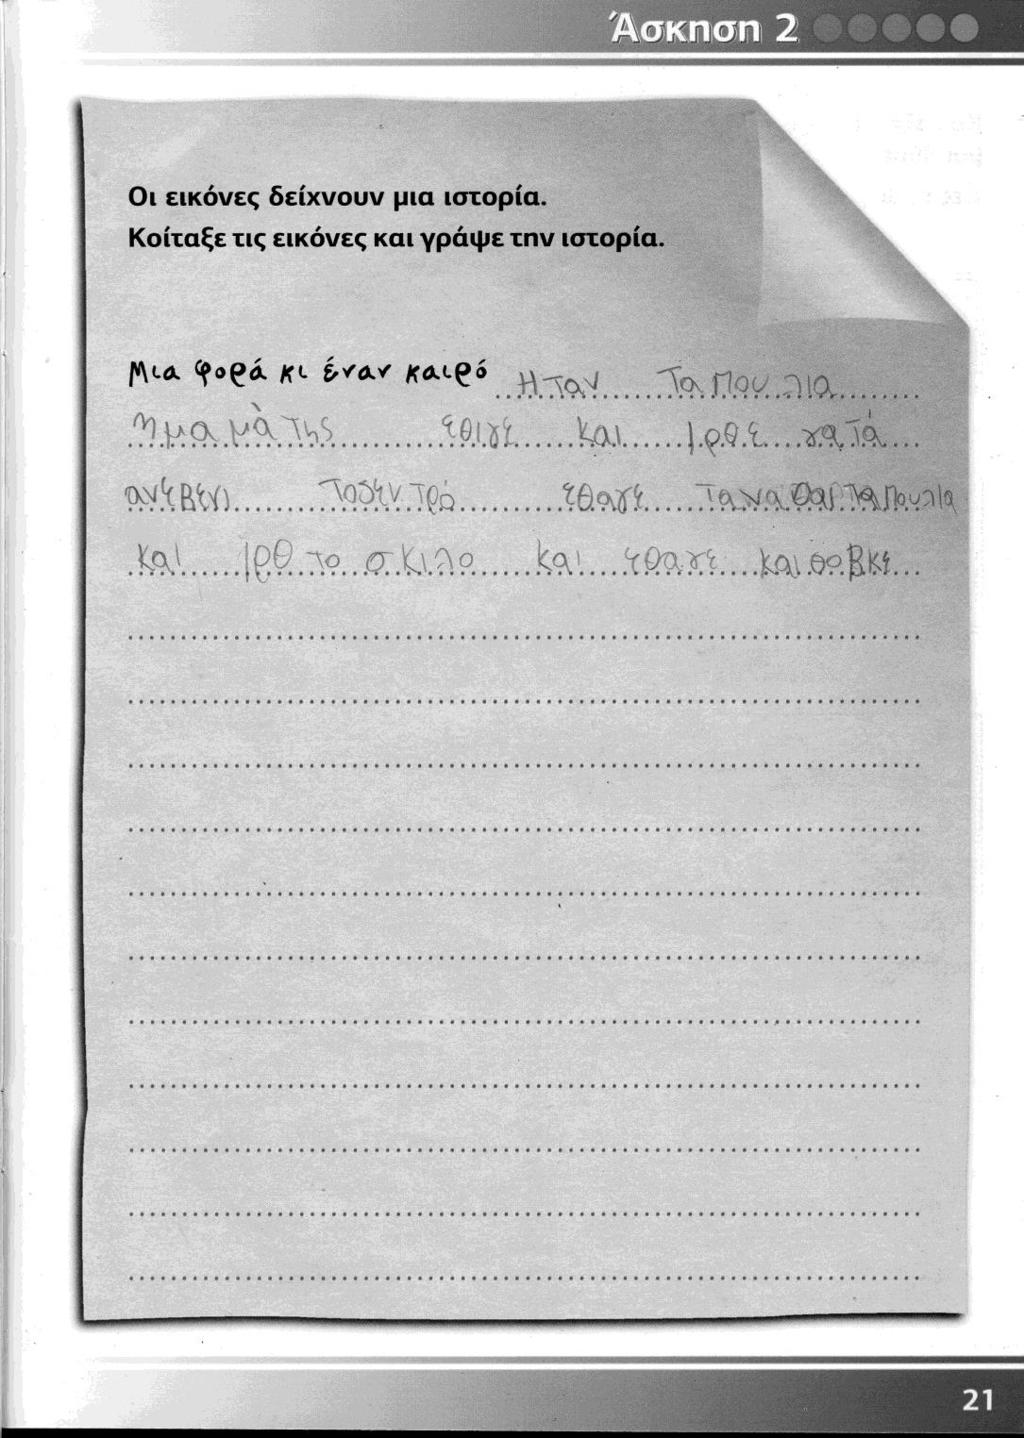 Άσκηση 2
Οι εικόνες δείχνουν μια ιστορία.
Κοίταξε τις εικόνες και γράψε την ιστορία.
Μια φορά κι έναν καιρό Ηταν Τα Πουλια
Ημα μὰ Της εθιγε και ιρθε γα Τά
ανεβενι Τοδεν Τρό εθαγε Τα να Θαρ Τα Πουλια
Και ιρθ το σκιλο Και εθαγε και θοβκε
21